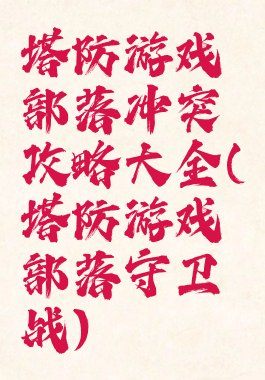 塔防游戏
部落冲突
攻略大全(
塔防游戏
部落守卫
战)